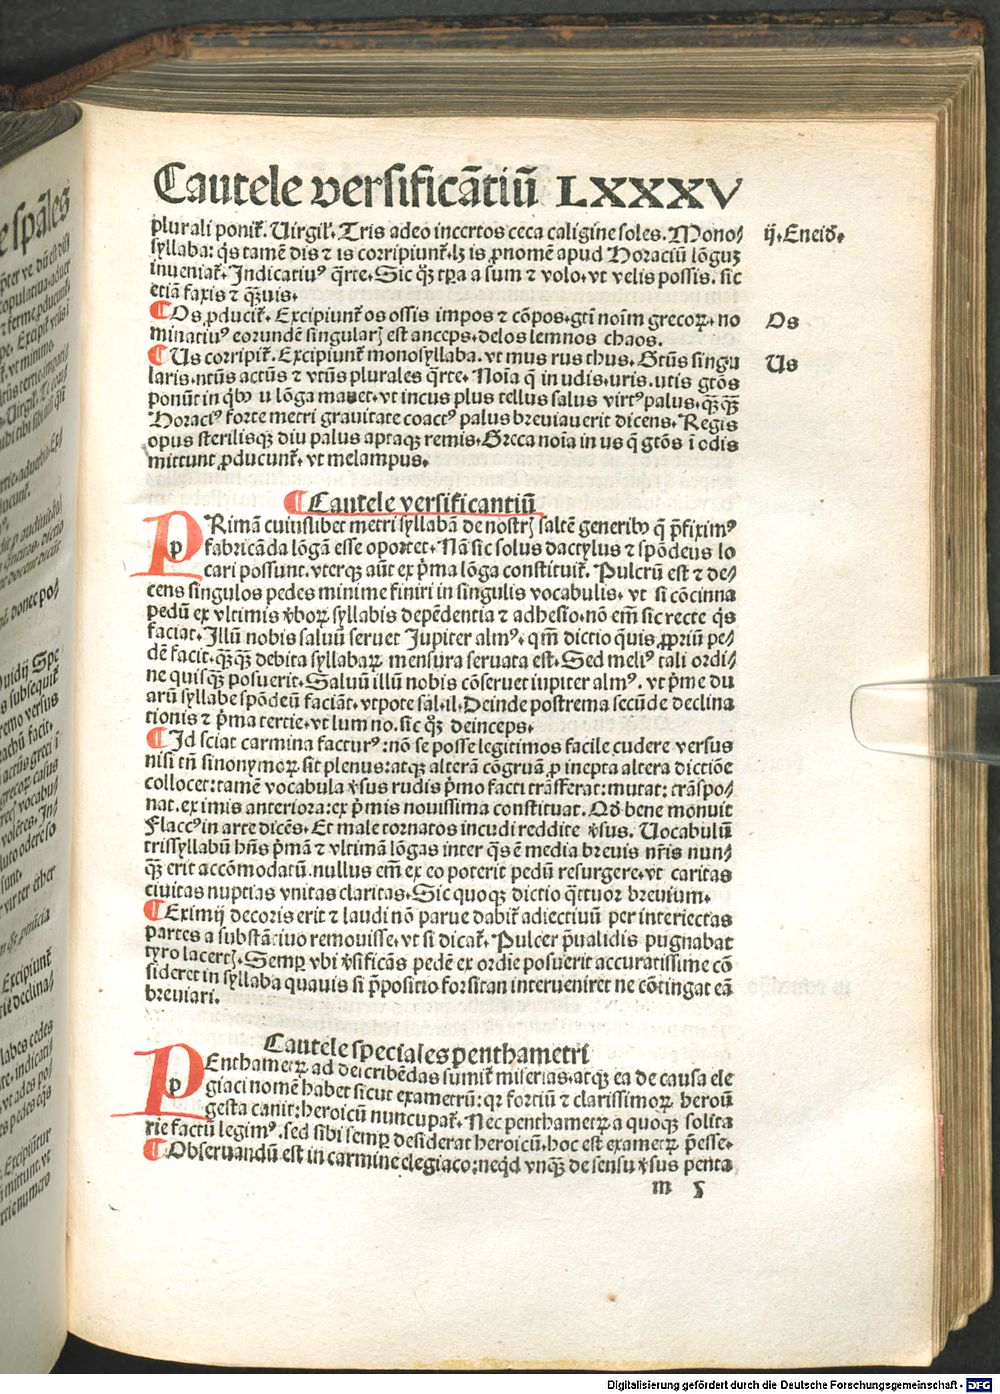 Cautele versificãtiũ LXXXV
plurali poniť. Uirgiľ. Tris adeo incertos ceca caligine soles. Mono⸗
syllaba: q̃s tamẽ dis ⁊ is corripiunť. lꝫ is ꝓnomẽ apud Horaciũ lõguꝫ
inueniať. Indicatiuꝰ q̃rte. Sic qꝫ̃ ꝯpa a sum ⁊ volo. vt velis possis. sic
etiã faxis ⁊ qꝫ̃uis.
¶ Os ꝓduciť. Excipiunť os ossis impos ⁊ cõpos. gtĩ noĩm grecoꝝ. no
minatiuꝰ eorundẽ singularꝭ est anceps. delos lemnos chaos.
¶ Us corripiť. Excipiunť monosyllaba. vt mus rus thus. Gtũs singu
laris. ntũs actũs ⁊ vtũs plurales q̃rte. Noĩa q̃ in udis. uris. utis gtõs
ponũt in qͥbꝰ u lõga manet. vt incus plus tellus salus virtꝰ palus. qꝫ̃qꝫ̃
Horaciꝰ forte metri grauitate coactꝰ palus breuiauerit dicens. Regis
opus sterilisqꝫ diu palus aptaqꝫ remis. Greca noĩa in us q̃ gtõs ĩ odis
mittunt ꝓducunť. vt melampus.
ĳ. Eneiď.
Os
Us
¶ Cautele versificantiũ
PRimã cuiuslibet metri syllabã de nostrꝭ saltẽ generibꝰ q̃ p̃fiximꝰ
fabricãda lõgã esse oportet. Nã sic solus dactylus ⁊ spõdeus lo
cari possunt. vterqꝫ aũt ex p̃ma lõga constituiť. Pulcrũ est ⁊ de⸗
cens singulos pedes minime finiri in singulis vocabulis. vt si cõcinna
pedũ ex vltimis v̾boꝝ syllabis depẽdentia ⁊ adhesio. nõ em̃ sic recte q̃s
faciat. Illũ nobis saluũ seruet Jupiter almꝰ. qm̃ dictio q̃uis ꝓpriũ pe⸗
dẽ facit. qꝫ̃qꝫ̃ debita syllabaꝝ mensura seruata est. Sed meliꝰ tali ordi⸗
ne quisqꝫ posuerit. Saluũ illũ nobis cõseruet iupiter almꝰ. vt p̃me du
arũ syllabe spõdeũ faciãt. vtpote sal. il. Deinde postrema secũde declina
tionis ⁊ p̃ma tertie. vt lum no. sic qꝫ̃ deinceps.
¶ Id sciat carmina facturꝰ: nõ se posse legitimos facile cudere versus
nisi tñ sinonymoꝝ sit plenus: atqꝫ alterã cõgruã ꝓ inepta altera dictiõe
collocet: tamẽ vocabula v̾sus rudis p̃mo facti trãsferat: mutat: trãspo⸗
nat. ex imis anteriora: ex p̃mis nouissima constituat. Qď bene monuit
Flaccꝰ in arte dicẽs. Et male tornatos incudi reddite v̾sus. Uocabulũ
trissyllabũ hñs p̃mã ⁊ vltimã lõgas inter q̃s ẽ media breuis nr̃is nun⸗
qꝫ̃ erit accõmodatũ. nullus em̃ ex eo poterit pedũ resurgere. vt caritas
ciuitas nuptias vnitas claritas. Sic quoqꝫ dictio q̃ttuor breuium.
¶ Eximij decoris erit ⁊ laudi nõ parue dabiť adiectiuũ per interiectas
partes a substãtiuo remouisse. vt si dicať. Pulcer p̃ualidis pugnabat
tyro lacertꝭ. Semp̲ vbi v̾sificãs pedẽ ex ordĩe posuerit accuratissime cõ
sideret in syllaba quauis si p̃positio forsitan interueniret ne cõtingat eã
breuiari.
Cautele speciales penthametri
PEnthametꝝ ad describẽdas sumiť miserias. atqꝫ ea de causa ele
giaci nomẽ habet sicut exametrũ: qr fortiũ ⁊ clarissimoꝝ heroũ
gesta canit: heroicũ nuncupať. Nec penthametꝝ a quoqꝫ solita
rie factũ legimꝰ. sed sibi semp̲ desiderat heroicũ. hoc est exametꝝ p̃esse.
¶ Obseruandũ est in carmine elegiaco: neqͥd vnqꝫ̃ de sensu v̾sus penta
m 5
Digitalisierung gefördert durch die Deutsche Forschungsgemeinschaft - DFG